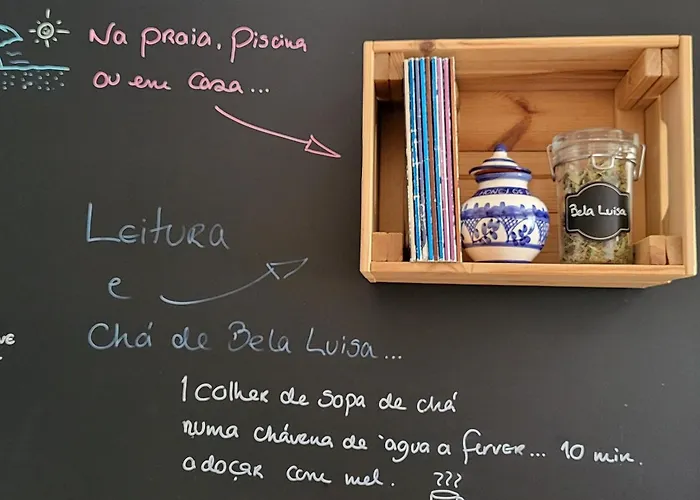 Na praia, piscina
ou em casa...
Leitura
e
Chá de Bela Luisa...
1 colher de sopa de chá
numa chávena de água a ferver... 10 min.
adoçar com mel.
???
HONEY
Bela Luisa